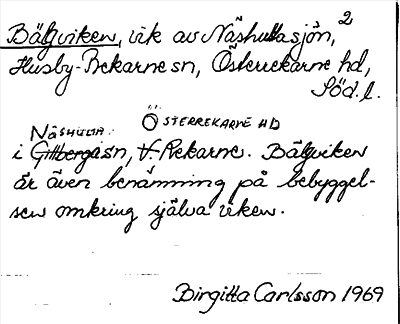 Bälgviken, vik av Näshultasjön, 2
Husby-Rekarne sn, Österrekarne hd,
Söd. l.
NÄSHULTA ÖSTERREKARNE HD
i Gillberga sn, V. Rekarne. Bälgviken
är även benämning på bebyggel-
sen omkring själva viken.
Birgitta Carlsson 1969